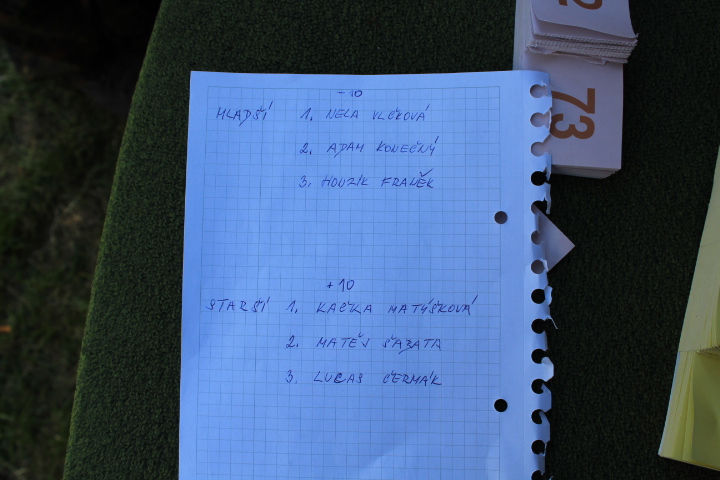 2
73
- 10
MLADŠÍ 1. NELA VLČKOVÁ
2. ADAM KONEČNÝ
3. HONZÍK FRANĚK
+ 10
STARŠÍ 1. KAČKA MATÝSKOVÁ
2. MATĚJ ŠABATA
3. LUCAS ČERMÁK